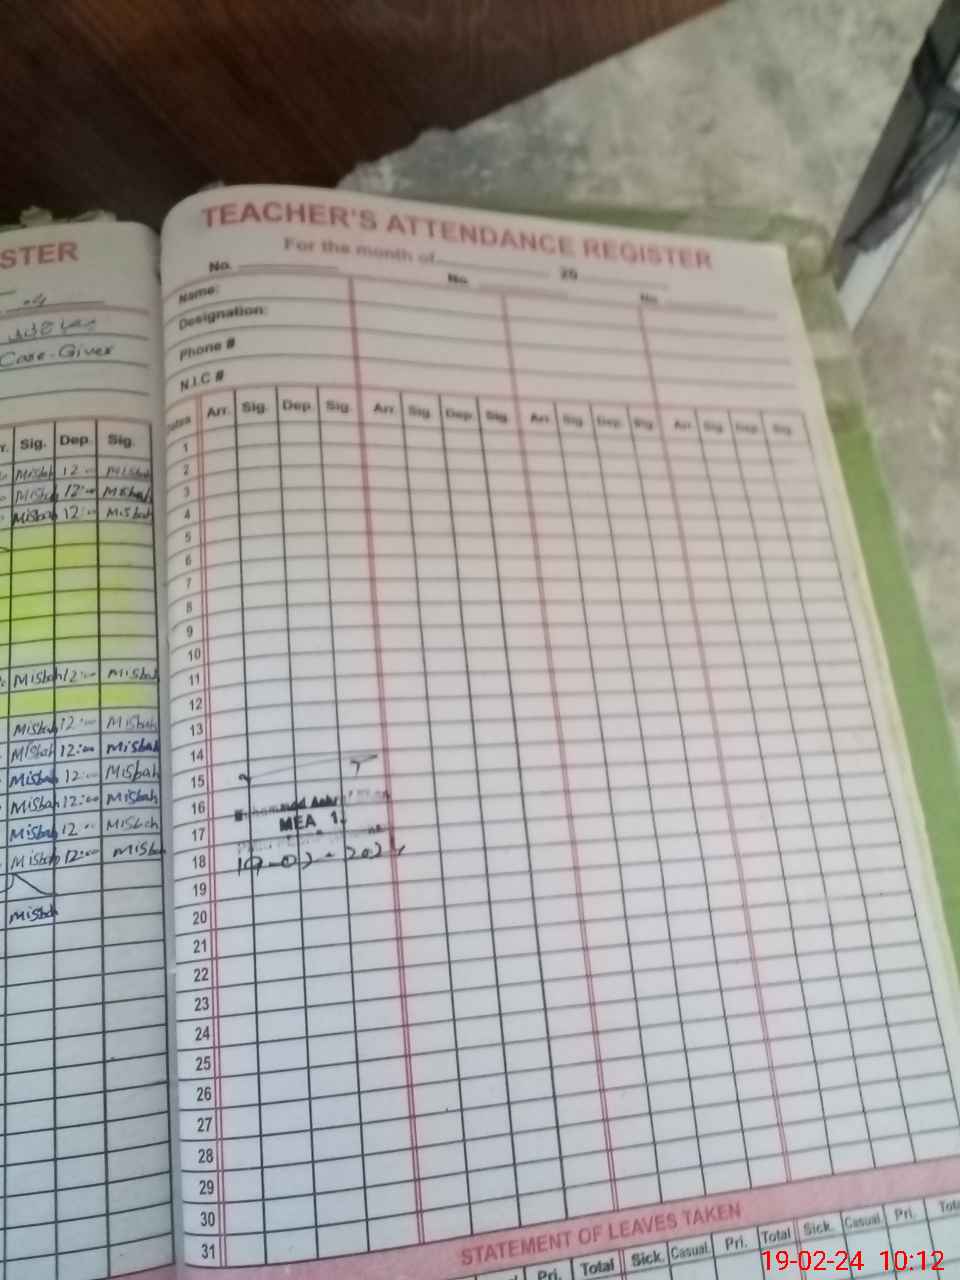 STER
Case-Giver
Sig. Dep. Sig.
Misbah 12:00 Misbah
Misbah 12:00 Misbah
Misbah 12:00 Misbah
Misbah 12:00 Misbah
Misbah 12:00 Misbah
Misbah 12:00 Misbah
Misbah 12:00 Misbah
Misbah 12:00 Misbah
Misbah 12:00 Misbah
Misbah 12:00 Misbah
Misbah
TEACHER'S ATTENDANCE REGISTER
For the month of 20
No. No. No.
Name:
Designation:
Phone #
N.I.C #
Dates Arr. Sig. Dep. Sig. Arr. Sig. Dep. Sig. Arr. Sig. Dep. Sig. Arr. Sig. Dep. Sig.
1
2
3
4
5
6
7
8
9
10
11
12
13
14
15
16
17
MEA
18
19-02-2024
19
20
21
22
23
24
25
26
27
28
29
30
31
STATEMENT OF LEAVES TAKEN
Pri. Total Sick. Casual. Pri. Total Sick. Casual. Pri.
19-02-24 10:12